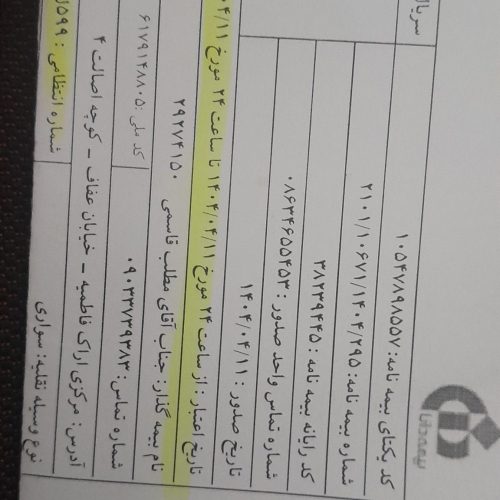 بیمه دانا
سریال
کد یکتای بیمه نامه: ۱۰۵۴۷۸۹۸۵۵۷
شماره بیمه نامه: ۲۱۰۱/۱۰۶۷۱/۱۴۰۴/۲۹۵
کد رایانه بیمه نامه: ۳۸۲۳۹۴۴۵
شماره تماس واحد صدور : ۰۸۶۳۴۶۵۵۴۵۳
تاریخ صدور : ۱۴۰۴/۰۴/۱۱
تاریخ اعتبار : از ساعت ۲۴ مورخ ۱۴۰۴/۰۴/۱۱ تا ساعت ۲۴ مورخ ۰۴/۱۱
نام بیمه گذار: جناب آقای مطلب قاسمی ۲۹۲۷۴۱۵۰
شماره تماس: ۰۹۰۳۳۷۳۹۳۸۳ کد ملی :۶۱۷۹۱۴۸۸۰۵
آدرس: مرکزی اراک فاطمیه - خیابان عفاف - کوچه اصالت ۴
نوع وسیله نقلیه: سواری شماره انتظامی : ۵۹۹